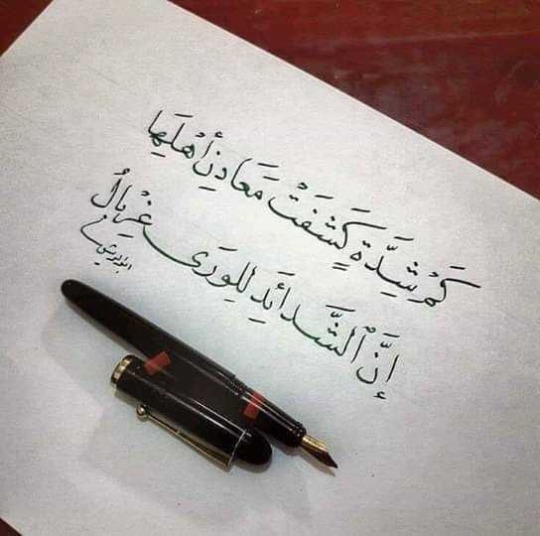 كَمْ شِدَّةٍ كَشَفَتْ مَعَادِنَ أَهْلِهَا
إِنَّ الشَّدَائِدَ لِلْوَرَى غِرْبَالُ